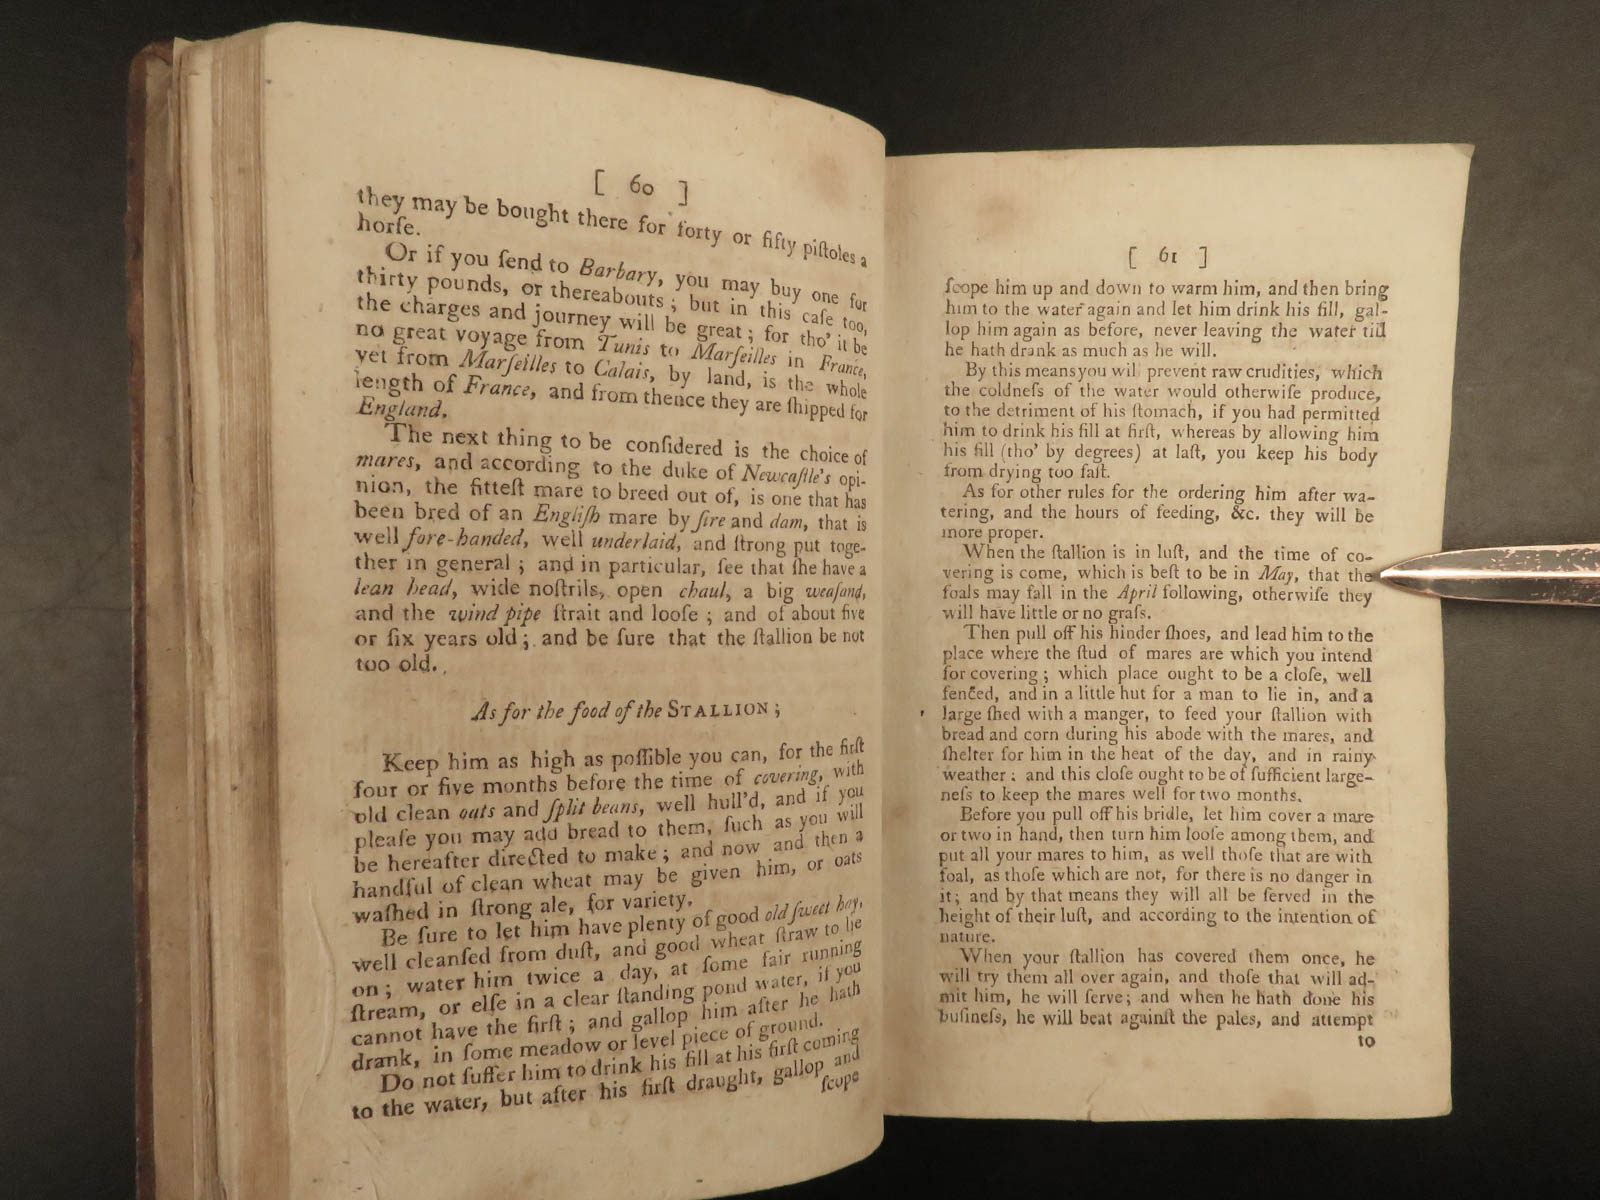 [ 60 ]
they may be bought there for forty or fifty piſtoles a
horſe.
Or if you ſend to Barbary, you may buy one for
thirty pounds, or thereabouts ; but in this caſe too,
the charges and journey will be great ; for tho' it be
no great voyage from Tunis to Marſeilles in France,
yet from Marſeilles to Calais, by land, is the whole
length of France, and from thence they are ſhipped for
England.
The next thing to be conſidered is the choice of
mares, and according to the duke of Newcaſtle's opi-
nion, the fitteſt mare to breed out of, is one that has
been bred of an Engliſh mare by ſire and dam, that is
well fore-handed, well underlaid, and ſtrong put toge-
ther in general ; and in particular, ſee that ſhe have a
lean head, wide noſtrils, open chaul, a big weaſand,
and the wind pipe ſtrait and looſe ; and of about five
or ſix years old ; and be ſure that the ſtallion be not
too old.
As for the food of the STALLION ;
Keep him as high as poſſible you can, for the firſt
four or five months before the time of covering, with
old clean oats and ſplit beans, well hull'd, and if you
pleaſe you may add bread to them, ſuch as you will
be hereafter directed to make ; and now and then a
handful of clean wheat may be given him, or oats
waſhed in ſtrong ale, for variety.
Be ſure to let him have plenty of good old ſweet hay,
well cleanſed from duſt, and good wheat ſtraw to lie
on ; water him twice a day, at ſome fair running
ſtream, or elſe in a clear ſtanding pond water, if you
cannot have the firſt ; and gallop him after he hath
drank, in ſome meadow or level piece of ground.
Do not ſuffer him to drink his fill at his firſt coming
to the water, but after his firſt draught, gallop and
ſcope
[ 61 ]
ſcope him up and down to warm him, and then bring
him to the water again and let him drink his fill, gal-
lop him again as before, never leaving the water till
he hath drank as much as he will.
By this means you wil prevent raw crudities, which
the coldneſs of the water would otherwiſe produce,
to the detriment of his ſtomach, if you had permitted
him to drink his fill at firſt, whereas by allowing him
his fill (tho' by degrees) at laſt, you keep his body
from drying too faſt.
As for other rules for the ordering him after wa-
tering, and the hours of feeding, &c. they will be
more proper.
When the ſtallion is in luſt, and the time of co-
vering is come, which is beſt to be in May, that the
foals may fall in the April following, otherwiſe they
will have little or no graſs.
Then pull off his hinder ſhoes, and lead him to the
place where the ſtud of mares are which you intend
for covering ; which place ought to be a cloſe, well
fenced, and in a little hut for a man to lie in, and a
large ſhed with a manger, to feed your ſtallion with
bread and corn during his abode with the mares, and
ſhelter for him in the heat of the day, and in rainy
weather ; and this cloſe ought to be of ſufficient large-
neſs to keep the mares well for two months.
Before you pull off his bridle, let him cover a mare
or two in hand, then turn him looſe among them, and
put all your mares to him, as well thoſe that are with
foal, as thoſe which are not, for there is no danger in
it ; and by that means they will all be ſerved in the
height of their luſt, and according to the intention of
nature.
When your ſtallion has covered them once, he
will try them all over again, and thoſe that will ad-
mit him, he will ſerve ; and when he hath done his
buſineſs, he will beat againſt the pales, and attempt
to